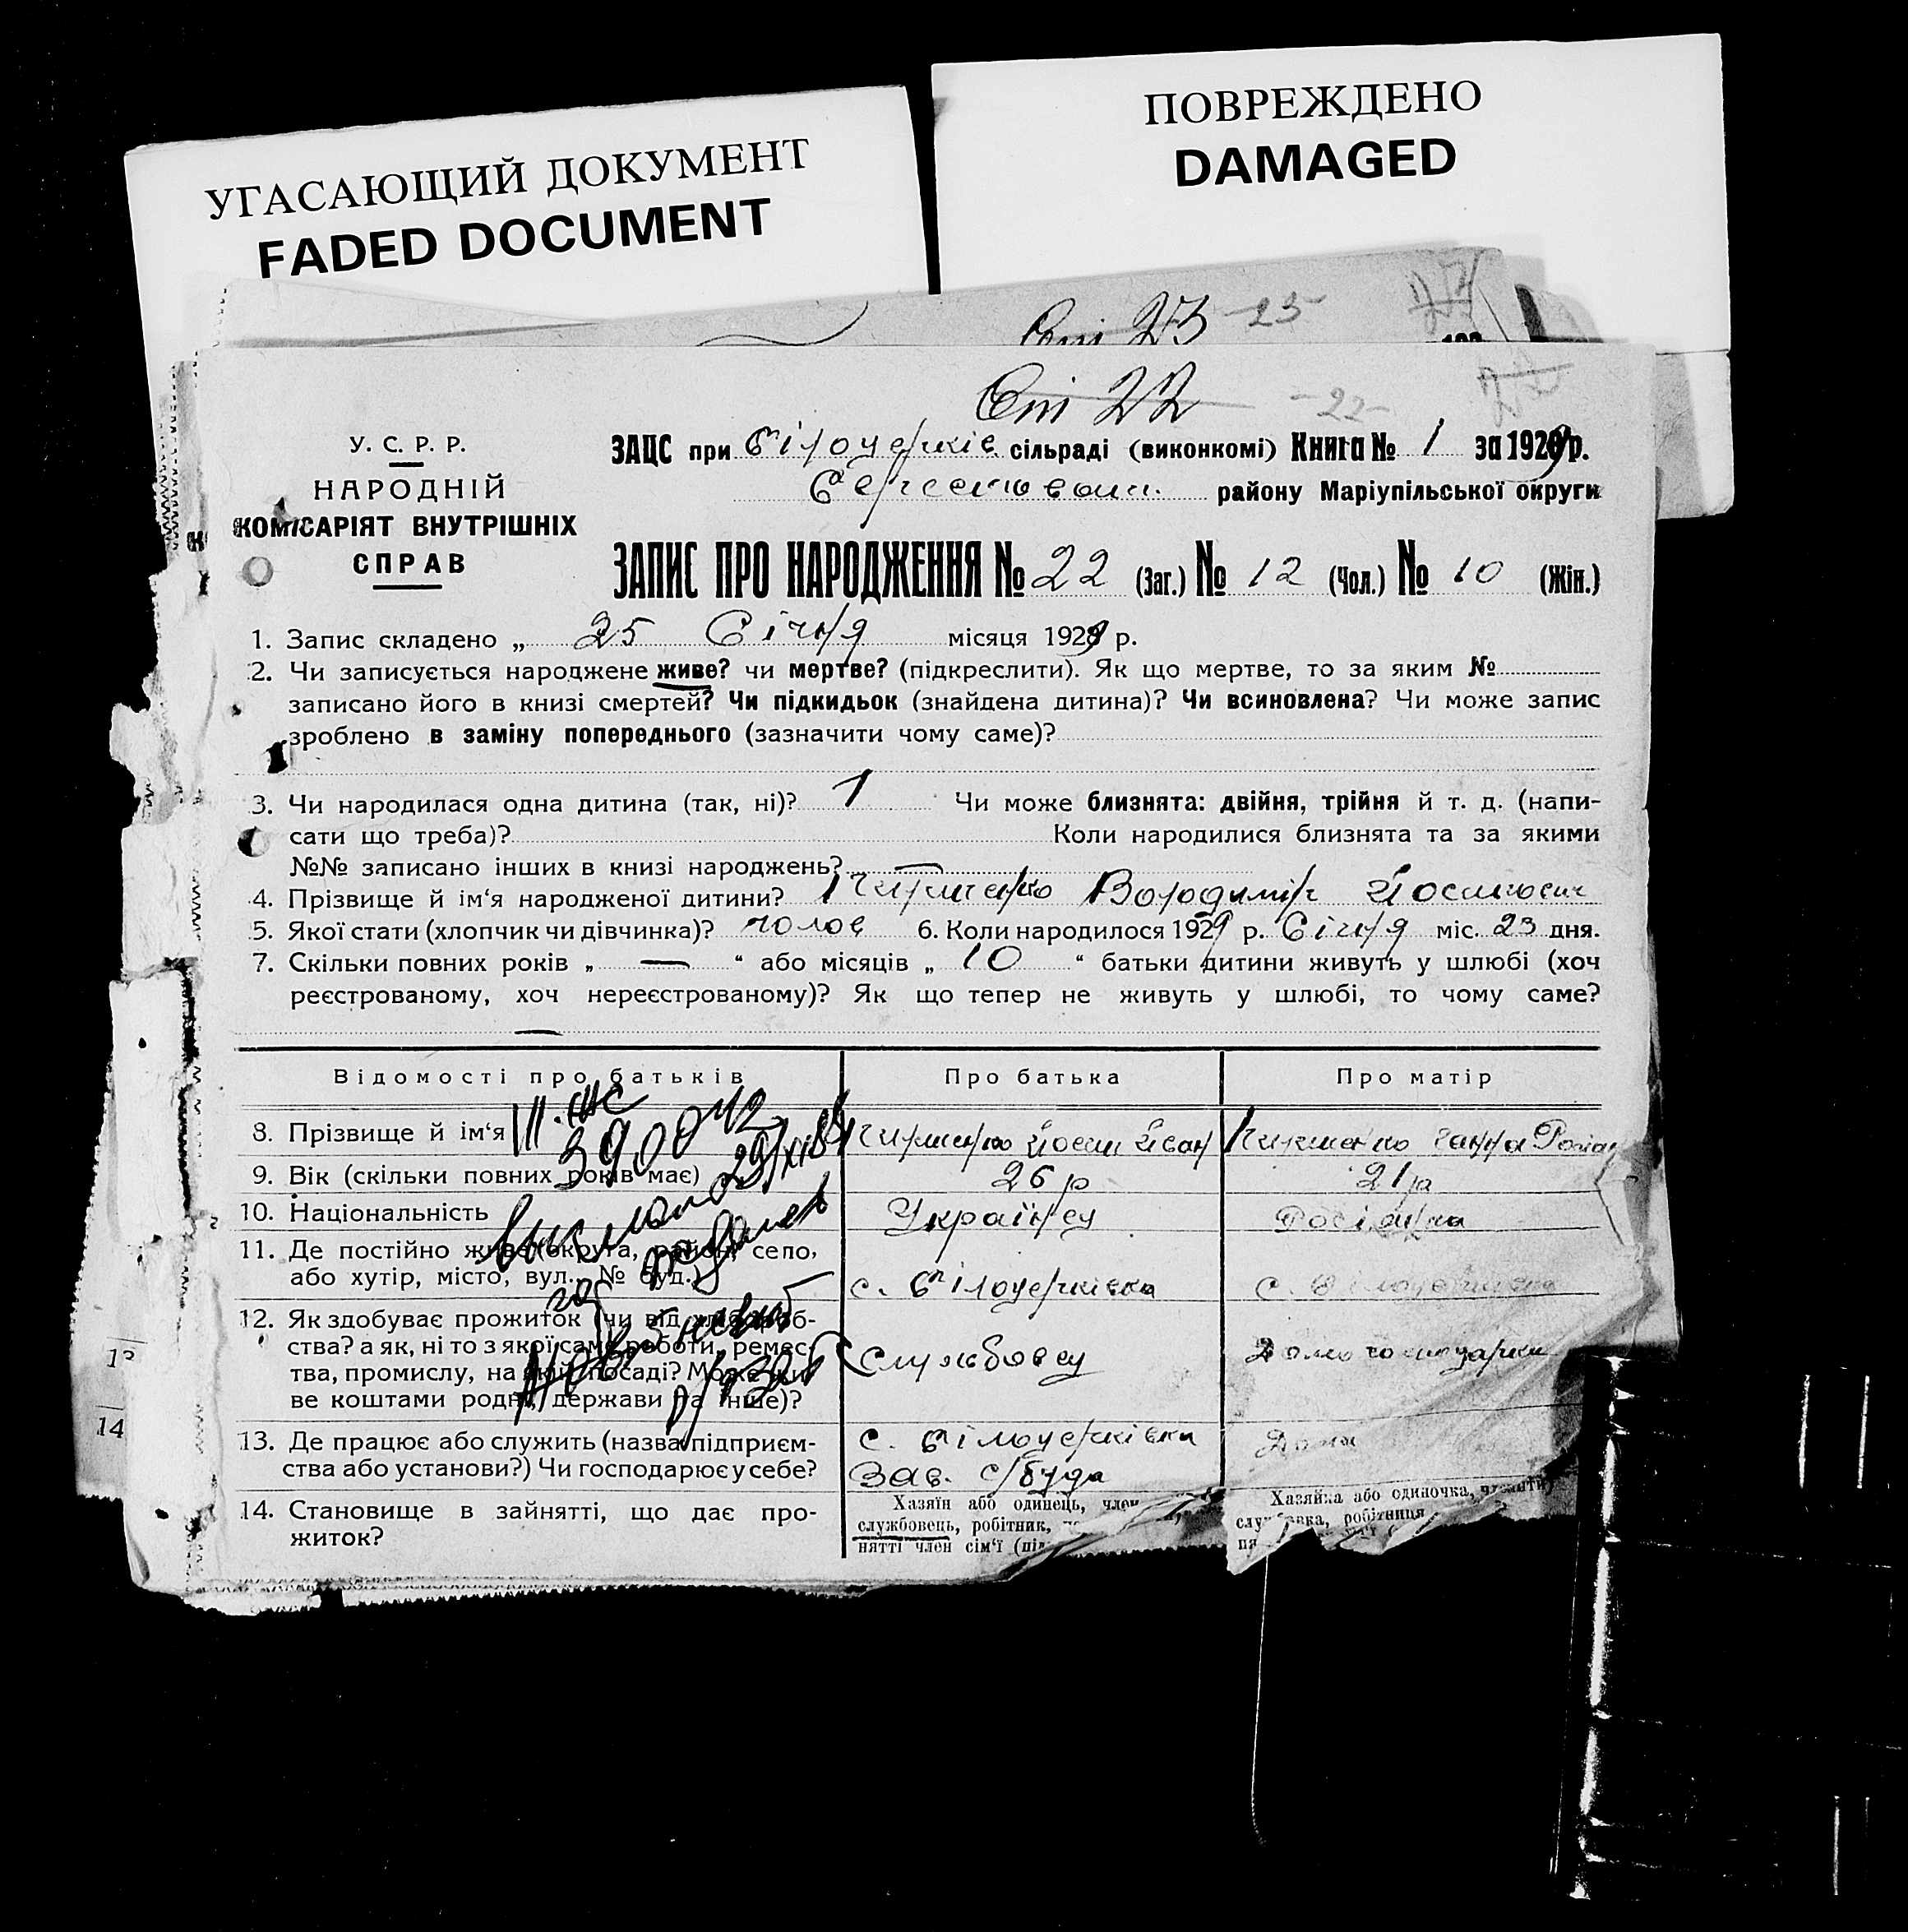 УГАСАЮЩИЙ ДОКУМЕНТ
FADED DOCUMENT
ПОВРЕЖДЕНО
DAMAGED
23 -25-
22 -22-
У. С. Р. Р.
НАРОДНІЙ
КОМІСАРІЯТ ВНУТРІШНІХ
СПРАВ
ЗАЦС при Білоцерків. сільраді (виконкомі) Книга № 1 за 1929 р.
району Маріупільської округи
ЗАПИС ПРО НАРОДЖЕННЯ № 22 (Заг.) № 12 (Чол.) № 10 (Жін.)
1. Запис складено „ 25 Січня місяця 1929 р.
2. Чи записується народжене живе? чи мертве? (підкреслити). Як що мертве, то за яким №
записано його в книзі смертей? Чи підкидьок (знайдена дитина)? Чи всиновлена? Чи може запис
зроблено в заміну попереднього (зазначити чому саме)?
3. Чи народилася одна дитина (так, ні)? 1 Чи може близнята: двійня, трійня й т. д. (напи-
сати що треба)? Коли народилися близнята та за якими
№№ записано інших в книзі народжень? —
4. Прізвище й ім‘я народженої дитини? Володимір
5. Якої стати (хлопчик чи дівчинка)? чолов 6. Коли народилося 1929 р. Січня міс. 23 дня.
7. Скільки повних років „ — “ або місяців „ 10 “ батьки дитини живуть у шлюбі (хоч
реєстрованому, хоч нереєстрованому)? Як що тепер не живуть у шлюбі, то чому саме?
—
Відомості про батьків Про батька Про матір
8. Прізвище й ім‘я Йосип Іван Ганна
9. Вік (скільки повних років має) 26 р 21 р
10. Національність Українец Росіянка
11. Де постійно живе (округа, район, село,
або хутір, місто, вул., № буд.) с. Білоцерківка с. Білоцерківка
12. Як здобуває прожиток (чи від хлібороб-
ства? а як, ні то з якої саме роботи, ремес-
тва, промислу, на якій посаді? Може жи-
ве коштами родні, держави та інше)?
Службовец Домогосподарка
13. Де працює або служить (назва підприєм-
ства або установи?) Чи господарює у себе?
с. Білоцерківка Дома
Зав. с/буда
14. Становище в зайнятті, що дає про-
житок?
Хазяїн або одинець, член
службовець, робітник,
нятті член сім‘ї
Хазяйка або одиночка,
робітниця
13
14